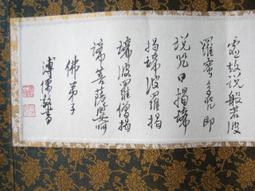 虛故說般若波
羅蜜多咒即
說咒曰揭諦
揭諦波羅揭
諦波羅僧揭
諦菩薩婆訶
佛弟子
溥儒敬書